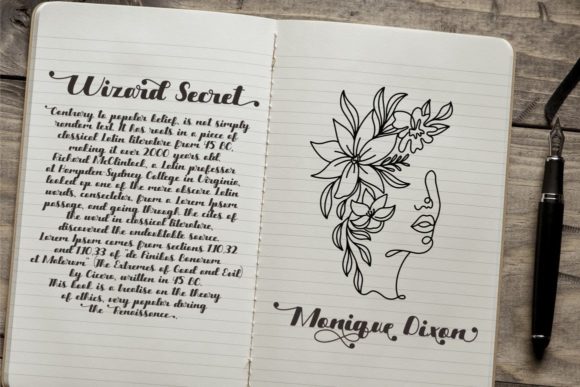 Wizard Secret
Contrary to popular belief, is not simply
random text. It has roots in a piece of
classical Latin literature from 45 BC,
making it over 2000 years old.
Richard McClintock, a Latin professor
at Hampden-Sydney College in Virginia,
looked up one of the more obscure Latin
words, consectetur, from a Lorem Ipsum
passage, and going through the cites of
the word in classical literature,
discovered the undoubtable source.
Lorem Ipsum comes from sections 1.10.32
and 1.10.33 of "de Finibus Bonorum
et Malorum" (The Extremes of Good and Evil)
by Cicero, written in 45 BC.
This book is a treatise on the theory
of ethics, very popular during
the Renaissance.
Monique Dixon